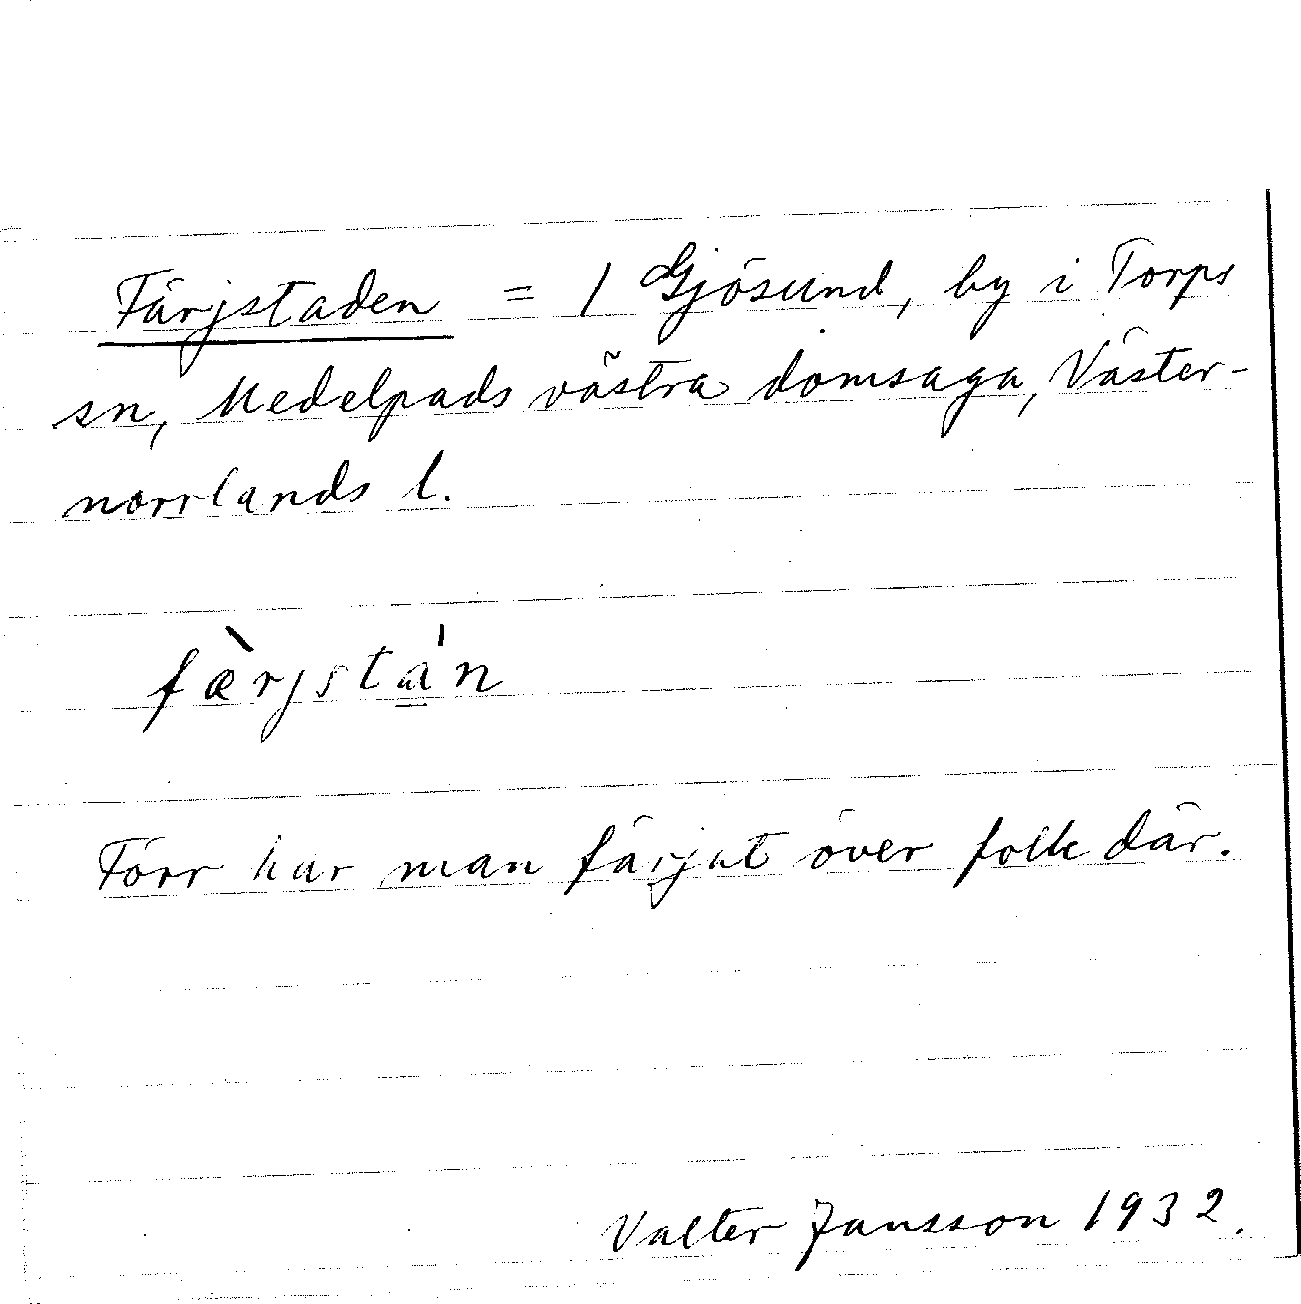 Färjstaden = 1 Gjösund, by i Torps
sn, Medelpads västra domsaga, Väster-
norrlands l.
fæ̀rjsta̲ˈn
Förr har man färjat över folk där.
Valter Jansson 1932.